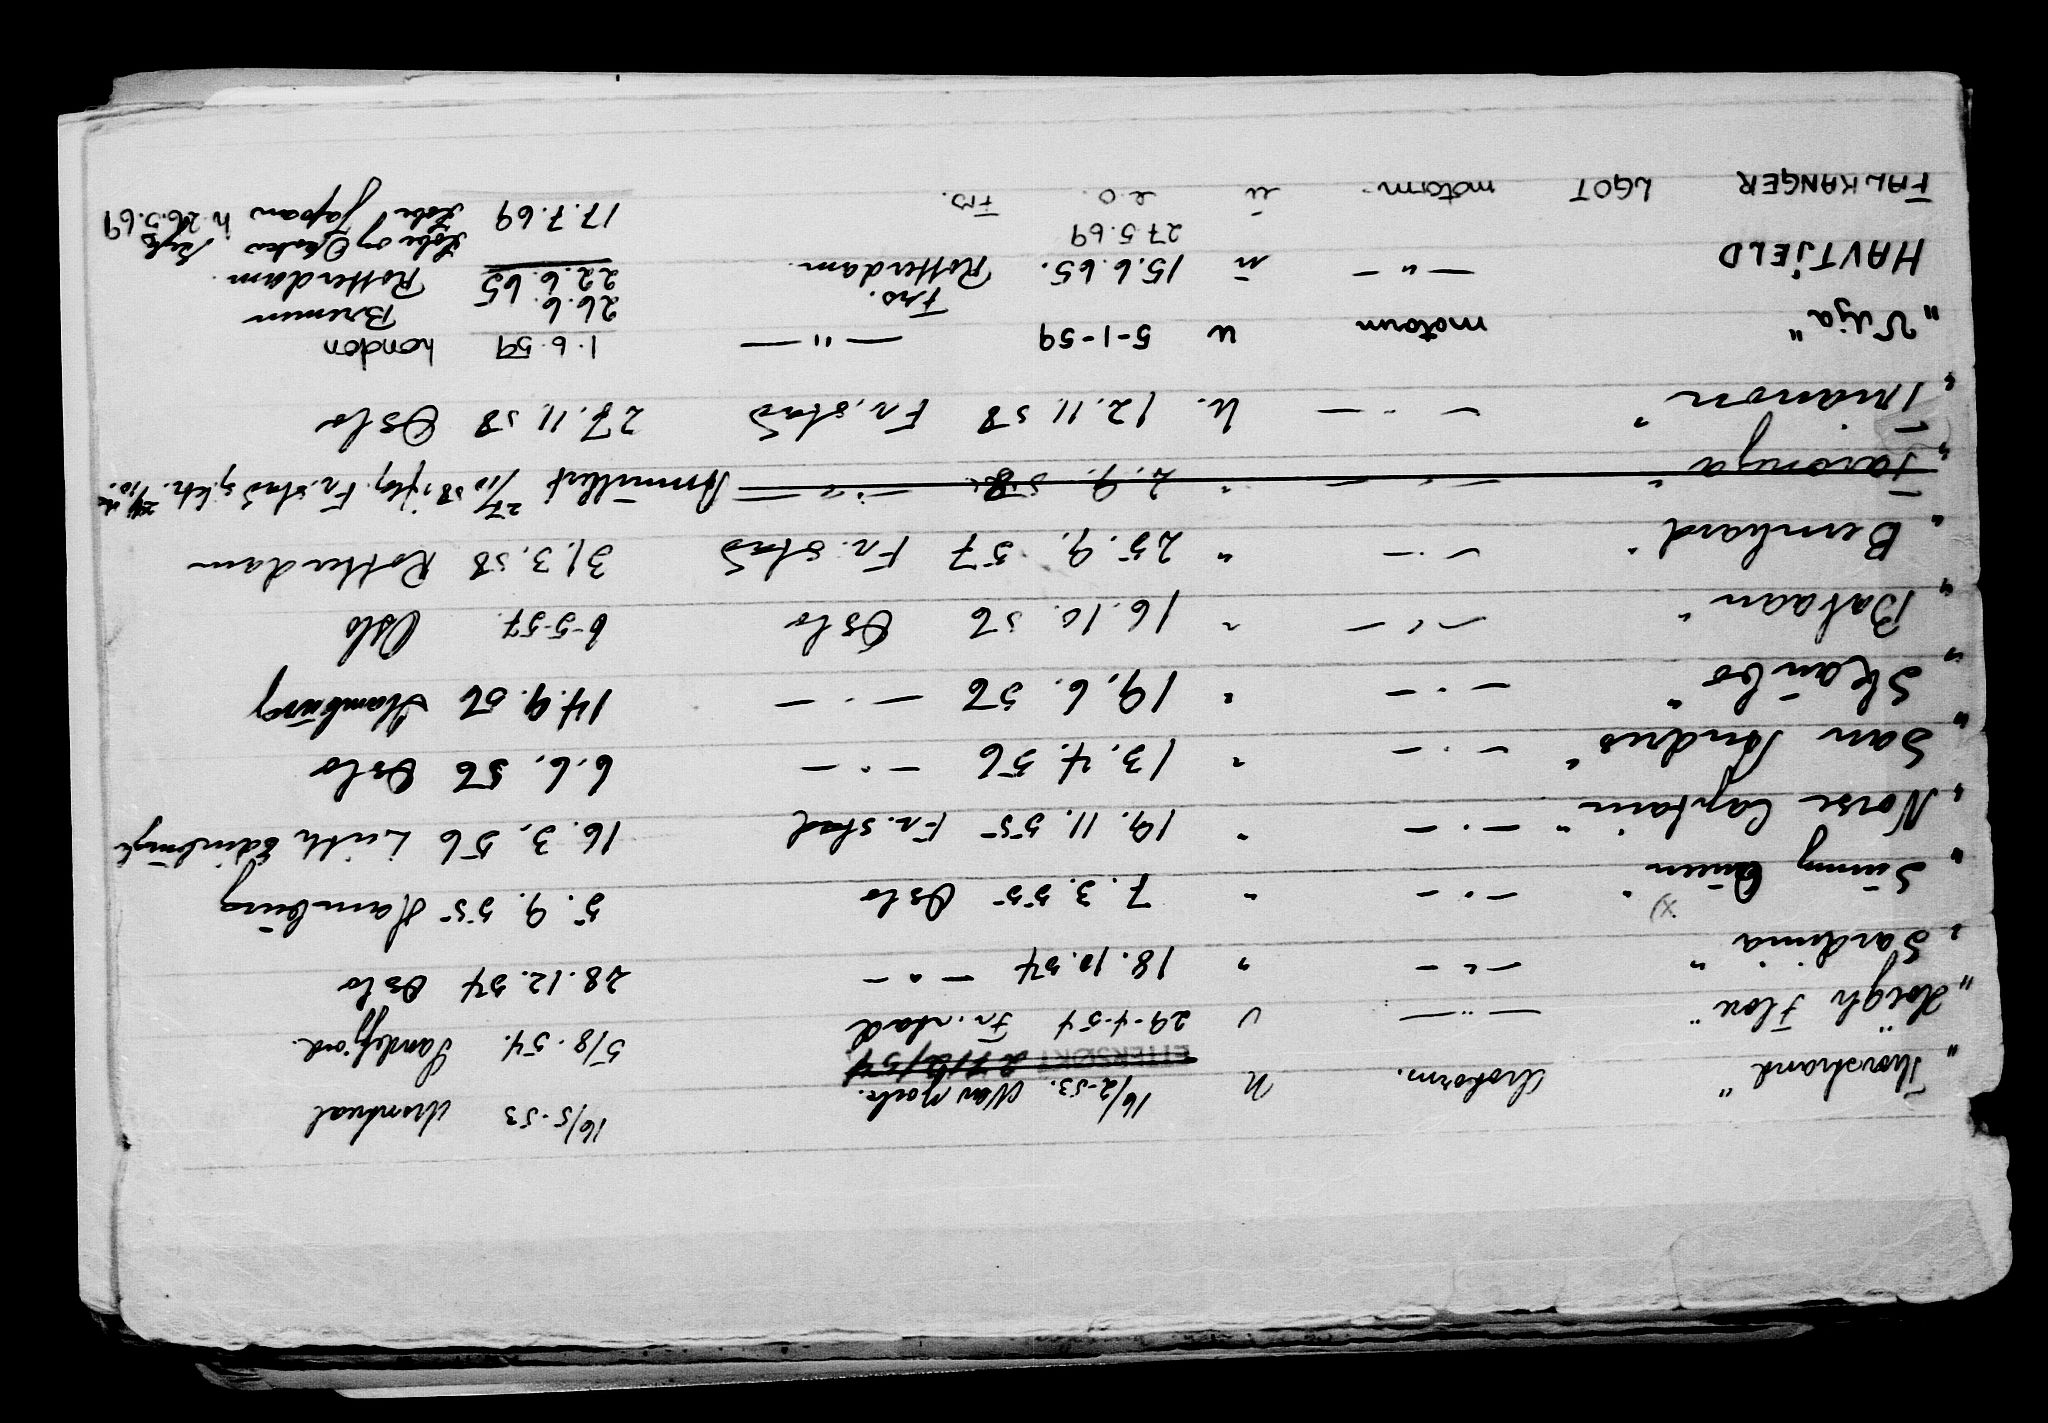 16/2-53. New York. 16/5-53 Montreal
"Thorstrand" Motorm. u ETTERSØKT 27/2/54
"Høegh Flou" — " — u 29-4-54 Fr.stad 5/8.54. Sandefjord.
"Sardinia" — " — " 18.10.54 — " — 28.12.54 Oslo
x)
"Sunny Queen" — " — " 7.3.55 Oslo 5.9.55 Hamburg
"Norse Captain" — " — " 19.11.55 Fr.stad 16.3.56 Leith Edinburgh
"San Andres" — " — " 13.4.56 — " — 6.6.56 Oslo
"Skaubo" — " — " 19.6.56 — " — 14.9.56 Hamburg
"Bataan" — " — " 16.10.56 Oslo 6-5-57. Oslo
"Bernhard" — " — " 25.9.57 Fr.stad 31.3.58 Rotterdam
"Taronga" — " — " 2.9.58. — " — Annullert 27/10 58, flg. Fr.stad sj.ktr.
"Trianon" — " — u. 12.11.58 Fr.stad 27.11.58 Oslo
"Vilja" motorm u 5-1-59 — " — 1.6.59 London
Fro. 26.6.65 Bremen
HAVTJELD — " — u 15.6.65. Rotterdam. 22.6.65 Rotterdam.
27.5.69 Kobe og Osaka
FALKANGER LGOT motorm. u e.o. Fro. 17.7.69 Kobe Japan h. 26.5.69